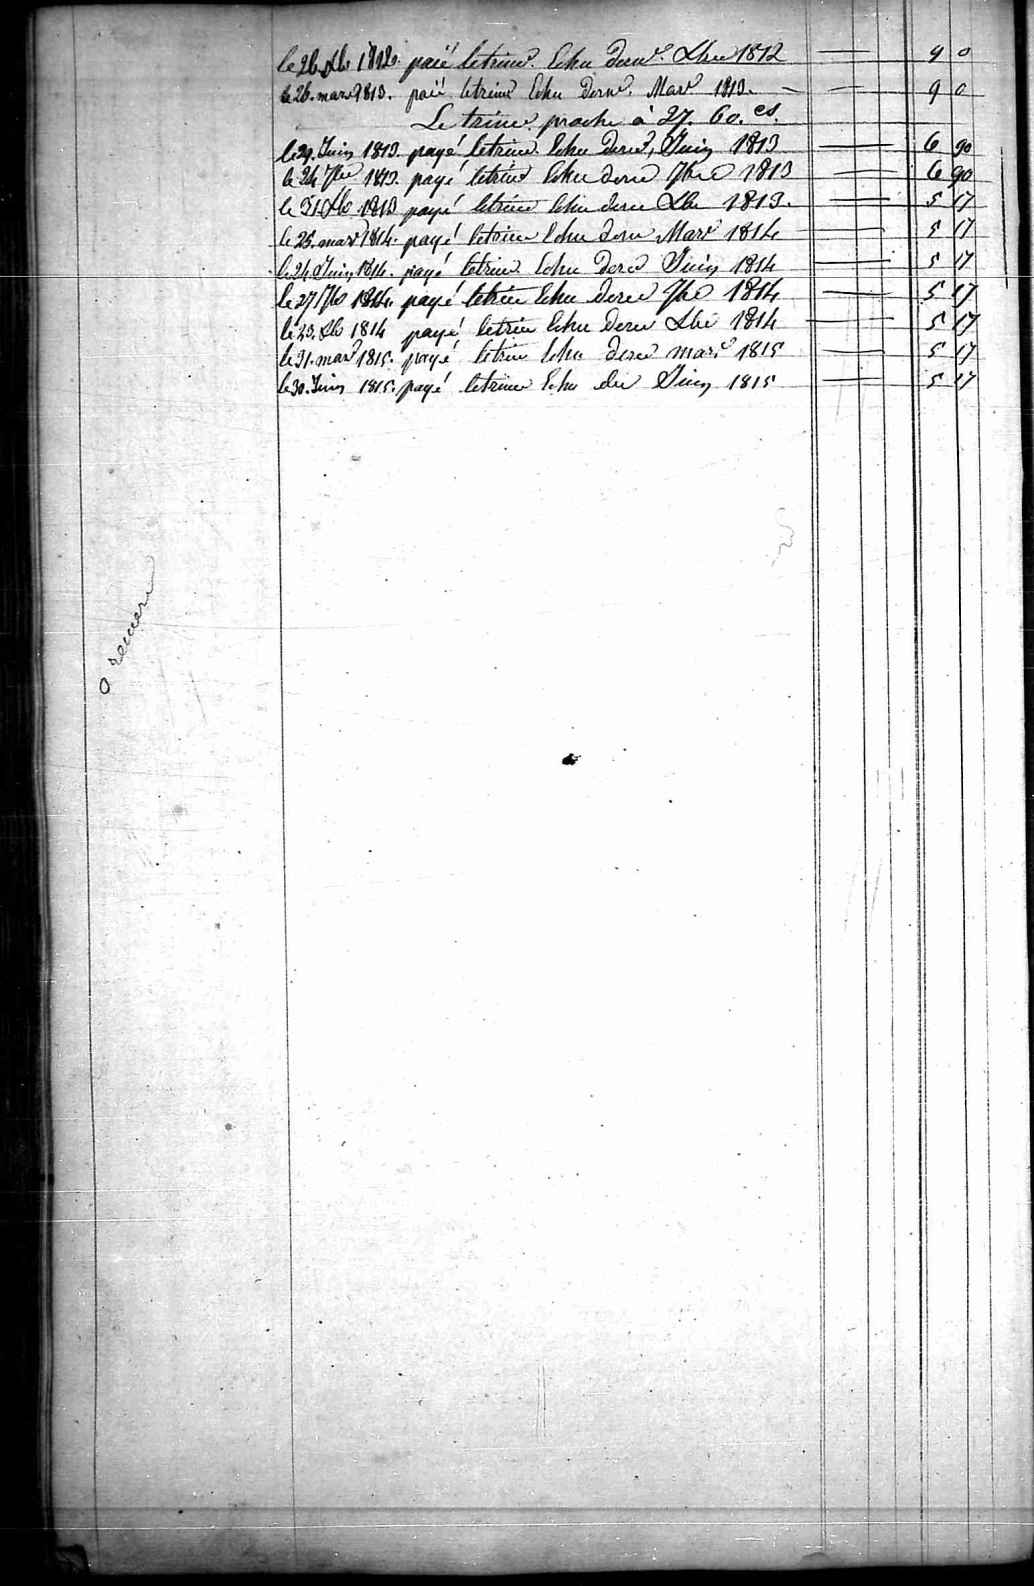 le 26. Xbe 1812. paié letrim.e Echu dern.r Xbre 1812 — 9 0
le 26. mars 1813. paié letrim.e Echu dern.r Mars 1813. — 9 0
Le trim.e proche à 27. 60. cs.
le 29. Juin 1813. payé letrim.e Echu dern.r Juin 1813 — 6 90
le 24 7bre 1813. payé letrim.e Echu dern.r 7bre 1813 — 6 90
le 31 Xbe 1813 payé letrime Echu dern Xbe 1813. — 5 17
le 25. mars 1814. payé letrime Echu dern Mars 1814 — 5 17
le 24 Juin 1814. payé letrim.e Echu dern Juin 1814 — 5 17
le 27 7be 1814. payé letrim Echu dern 7be 1814 — 5 17
le 23. Xbe 1814 payé letrim Echu dern Xbe 1814 — 5 17
le 31. mars 1815. payé letrim Echu dern mars 1815 — 5 17
le 30. Juin 1815. payé letrime Echu du Juin 1815 — 5 17